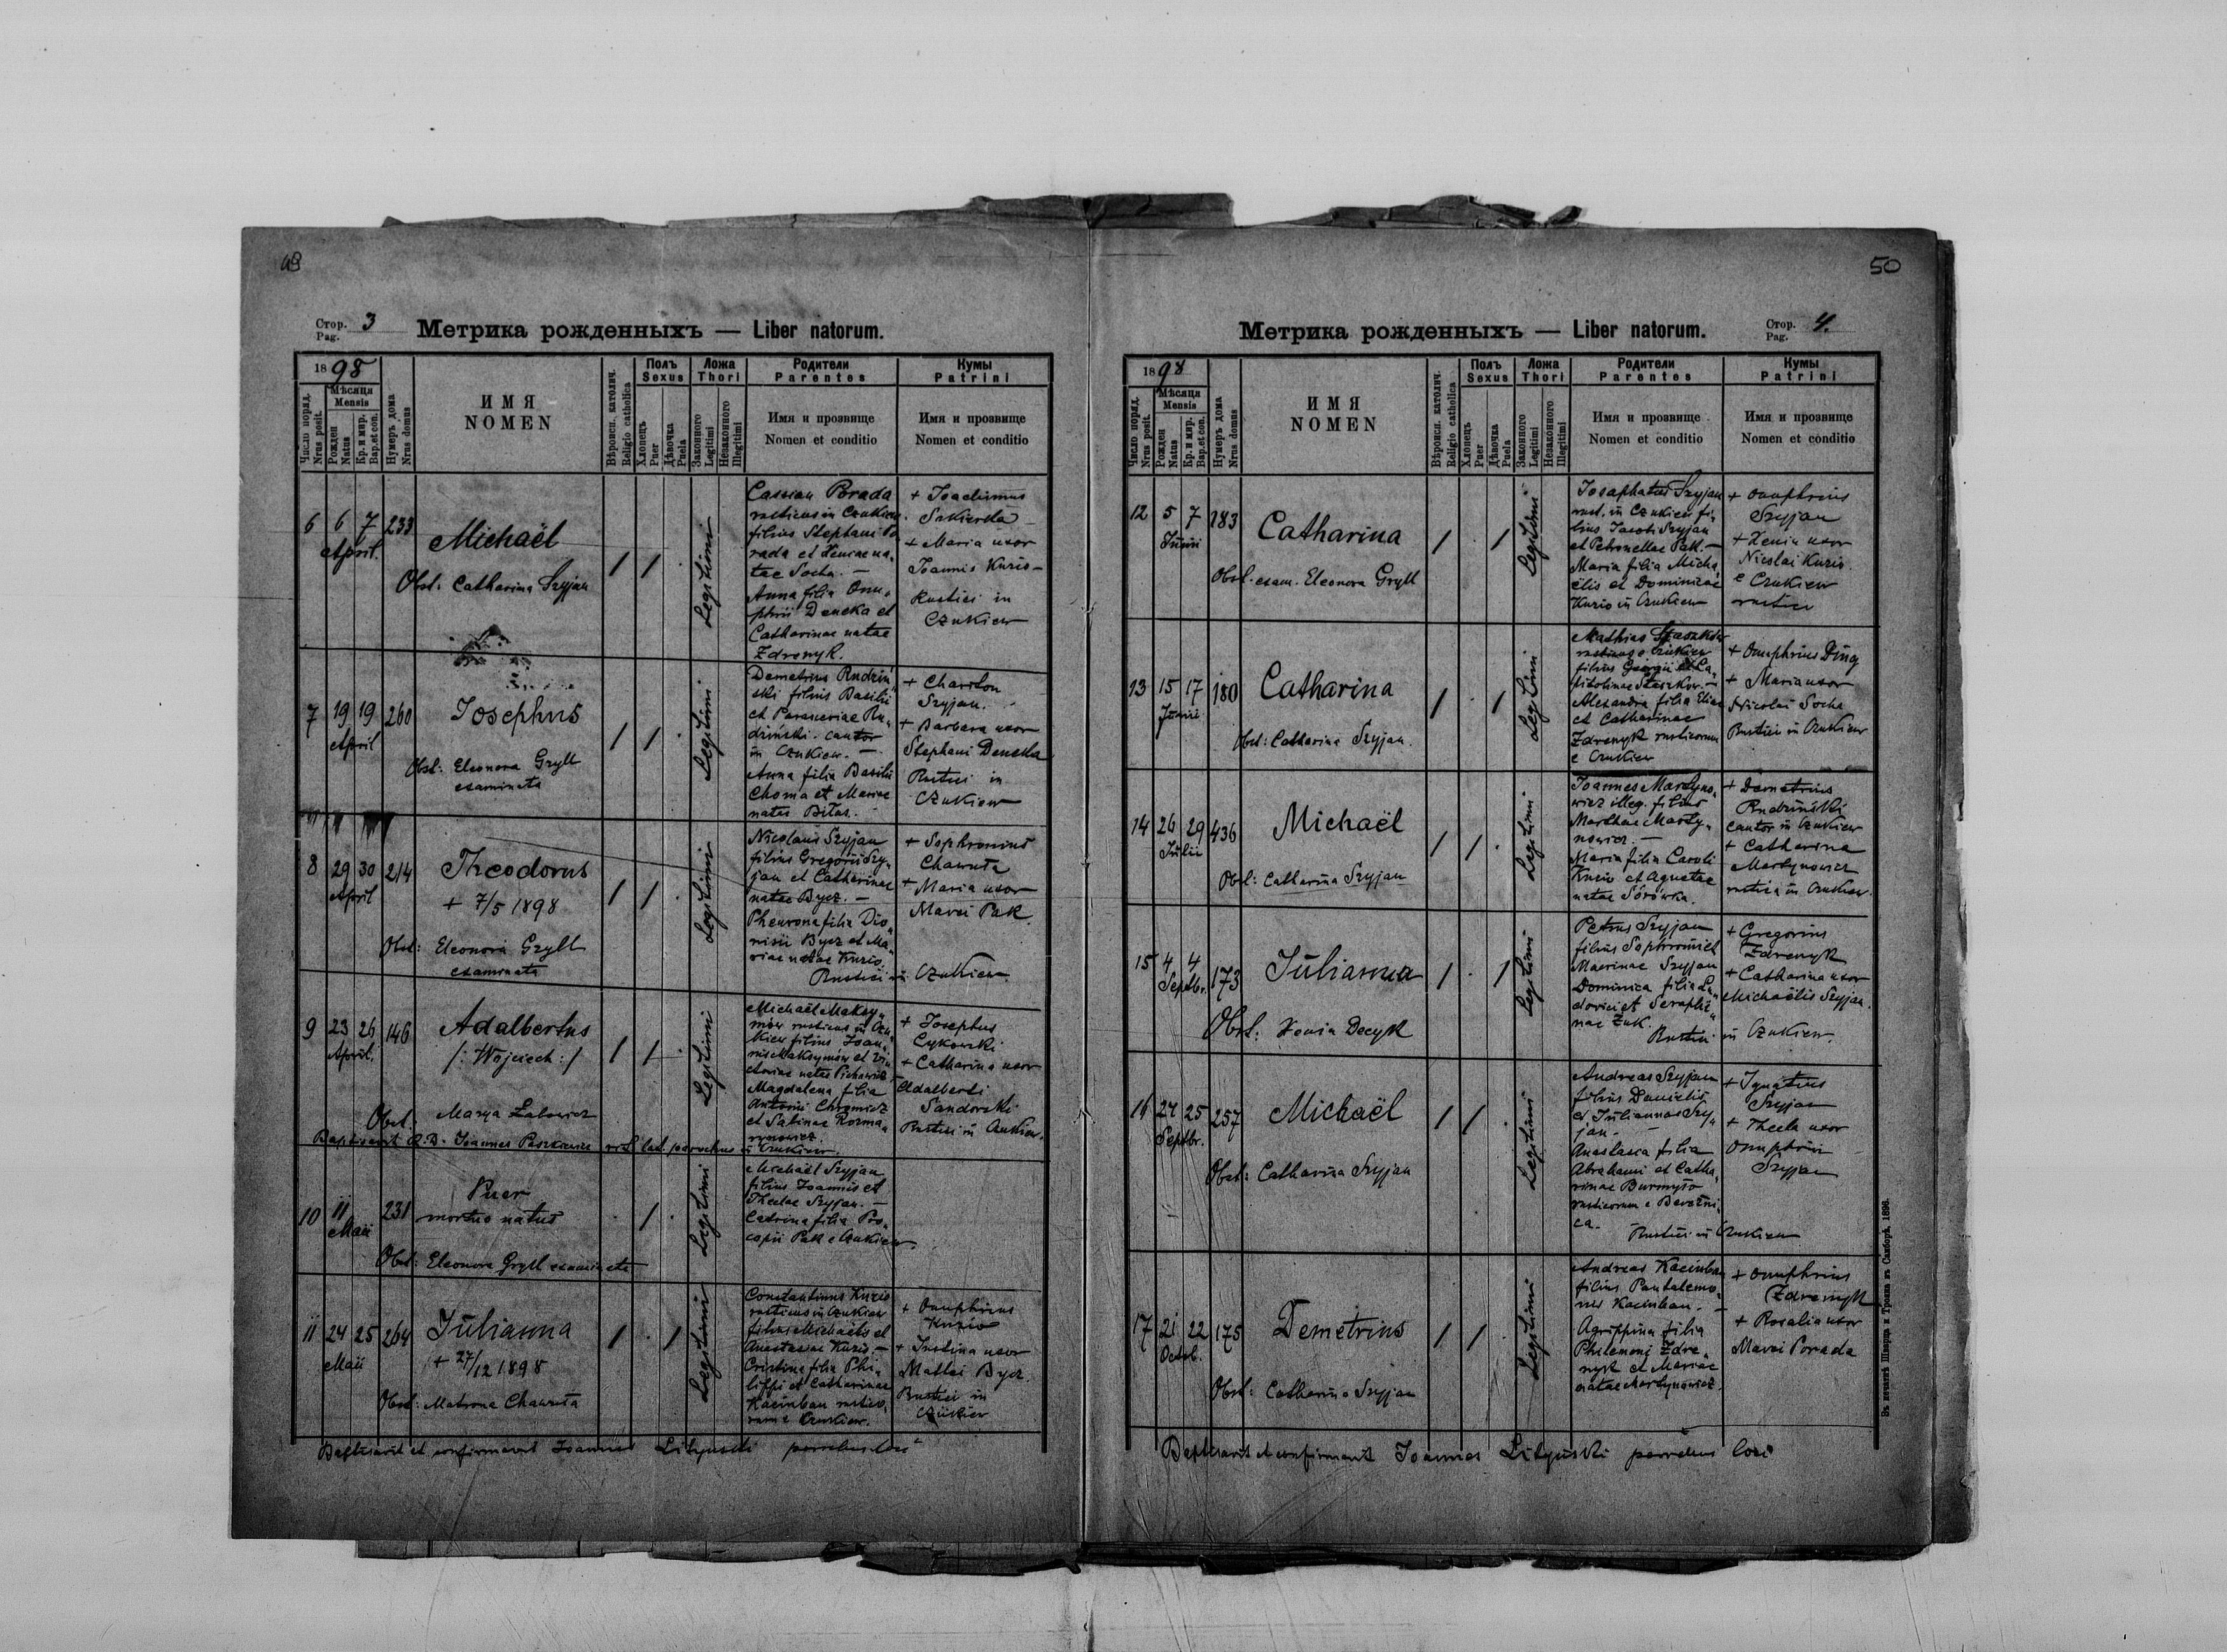 49
Стор. Pag. 3
Метрика рожденныхъ — Liber natorum.
1898
Число поряд. Nrus posit.
Мѣсяця Mensis
Рожден Natus
Кр. и мир. Bap. et con.
Нумеръ дома Nrus domus
ИМЯ
NOMEN
Вѣроисп. католич. Religio catholica
Полъ Sexus
Хлопецъ Puer
Дѣвочка Puela
Ложа Thori
Законного Legitimi
Незаконного Illegitimi
Родители
Parentes
Имя и прозвище
Nomen et conditio
Кумы
Patrini
Имя и прозвище
Nomen et conditio
6 6 7 233
April.
Michaël
Obst: Catharina Szyjan
/ / .
Legitimi
Cassian Porada
rusticus in Czukiew
filius Stephani Po
rada et Xeniae na,
tae Socha. —
Anna filia Onu,
phrii Deneka et
Catharinae natae
Zdrenyk.
+ Joachimus
+ Maria uxor
Joannis Kuzio —
Rustici in
Czukiew
7 19 19 260
April
Josephus
Obst: Eleonora Gryll
examinata
/ / .
Legitimi
Demetrius Rudziń
ski filius Basilii
et Parasceviae Ru,
dziński. cantor
in Czukiew. —
Anna filia Basilii
Choma et Mariae
natae Bilas. —
+ Chariton
Szyjan.
+ Barbara uxor
Stephani Deneka
Rustici in
Czukiew
8 29 30 214
April
Theodorus
+ 7/5 1898
Obst: Eleonora Gryll
examinata
/ / .
Legitimi
Nicolaus Szyjan
filius Gregorii Szy,
jan et Catharinae
natae Bycz. —
Phevrona filia Dio,
nisii Bycz et Ma,
riae natae Kuzio.
Rustici in Czukiew.
+ Sophronius
Chawuta
+ Maria uxor
Mavei Pak
9 23 26 146
April.
Adalbertus
/: Wojciech :/
Obst. Marya Labowicz
/ / .
Legitimi
Michaël Maksy,
mów rusticus in Czu,
kiew filius Joan,
nis Maksymów et Vi
ctoriae natae
Magdalena filia
Antonii
et Sabinae Rozma,
+ Josephus
Cykowski
+ Catharina uxor
Adalberti
Sandorski
Rustici in Czukiew.
Baptisavit R. D. Joannes rit. lat. parochus in Czukiew.
10 11 231
Maii
Puer
mortuo natus
Obst: Eleonora Gryll examinata
. / .
Legitimi
Michaël Szyjan
filius Joannis et
Theclae Szyjan. —
Catrina filia Pro,
copii Pak e Czukiew.
11 24 25 264
Maii
Julianna
+ 27/12 1898
Obst: Matrona Chawuta
/ . /
Legitimi
Constantinus Kuzio
rusticus in Czukiew
filius Michaëlis et
Anastasiae Kuzio. —
Cristina filia Phi,
lippi et Catharinae
Kacinban rustico,
rum e Czukiew.
+ Onuphrius
Kuzio
+ Justina uxor
Mattei Bycz.
Rustici in
Czukiew
Baptisavit et confirmavit Joannes Lityński parochus loci
50
Стор. Pag. 4.
Метрика рожденныхъ — Liber natorum.
1898
Число поряд. Nrus posit.
Мѣсяця Mensis
Рожден Natus
Кр. и мир. Bap. et con.
Нумеръ дома Nrus domus
ИМЯ
NOMEN
Вѣроисп. католич. Religio catholica
Полъ Sexus
Хлопецъ Puer
Дѣвочка Puela
Ложа Thori
Законного Legitimi
Незаконного Illegitimi
Родители
Parentes
Имя и прозвище
Nomen et conditio
Кумы
Patrini
Имя и прозвище
Nomen et conditio
12 5 7 183
Junii
Catharina
Obst. exam. Eleonora Gryll
/ . /
Legitimi
Josaphatus Szyjan
rust. in Czukiew fi,
lius Jacobi Szyjan
et Petronellae Pak. —
Maria filia Micha,
ëlis et Dominicae
Kuzio in Czukiew
+ Onuphrius
Szyjan
+ Xenia uxor
Nicolai Kuzio.
e Czukiew
rustici
13 15 17 180
Junii
Catharina
Obst: Catharina Szyjan.
/ . /
Legitimi
Mathias Staszków
rusticus e Czukiew
filius Georgii et Ca,
pitolinae Staszków. —
Alexandra filia Eliae
et Catharinae
Zdrenyk rusticorum
e Czukiew
+ Onuphrius Ding
+ Maria uxor
Nicolai Socha
Rustici in Czukiew
14 26 29 436
Julii
Michaël
Obst: Catharina Szyjan
/ / .
Legitimi
Joannes Martyno,
wicz illeg. filius
Marthae Marty,
nowicz. —
Maria filia Caroli
Kuzio et Agnetae
natae Sórówka.
+ Demetrius
Rudziński
cantor in Czukiew
+ Catharina
Martynowicz
rustica in Czukiew.
15 4 4 173
Septbr.
Julianna
Obst: Xenia Decyk
/ . /
Legitimi
Petrus Szyjan
filius Sophronii et
Macrinae Szyjan
Dominica filia Lu,
dovici et Seraphi,
nae Żuk.
Rustici in Czukiew.
+ Gregorius
Zdrenyk
+ Catharina uxor
Michaëlis Szyjan.
16 24 25 257
Septbr.
Michaël
Obst: Catharina Szyjan
/ / .
Legitimi
Andreas Szyjan
filius Danielis
et Juliannae Szy,
jan. —
Anastasia filia
Abrahami et Catha,
rinae Burmyło
rusticorum e Bereźni,
ca.
Rustici in Czukiew
+ Ignatius
Szyjan
+ Thecla uxor
Onuphrii
Szyjan
17 21 22 175
Octob.
Demetrius
Obst: Catharina Szyjan
/ / .
Legitimi
Andreas Kacinban
filius Pantalemo,
nis Kacinban. —
Agrippina filia
Philemoni Zdre,
nyk et Mariae
natae Martynowicz.
+ Onuphrius
Zdrenyk
+ Rosalia uxor
Mavei Porada
Baptisavit et confirmavit Joannes Lityński parochus loci
Въ печатни Шварца и Трояна въ Самборѣ, 1896.